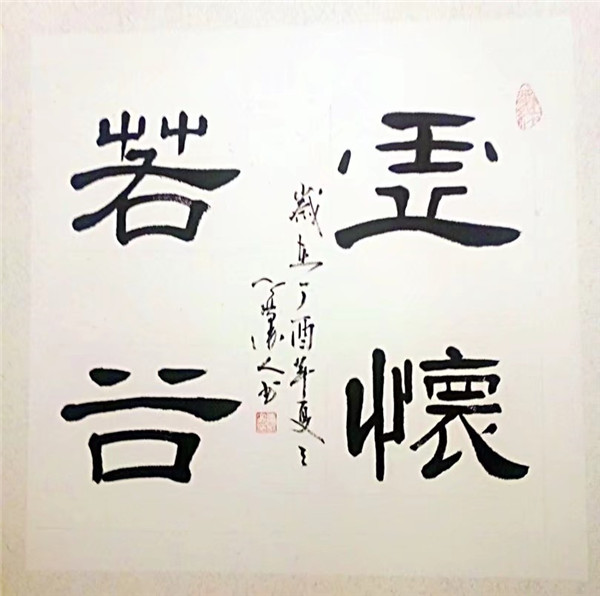 虛懷
若谷
歲在丁酉年夏
人书